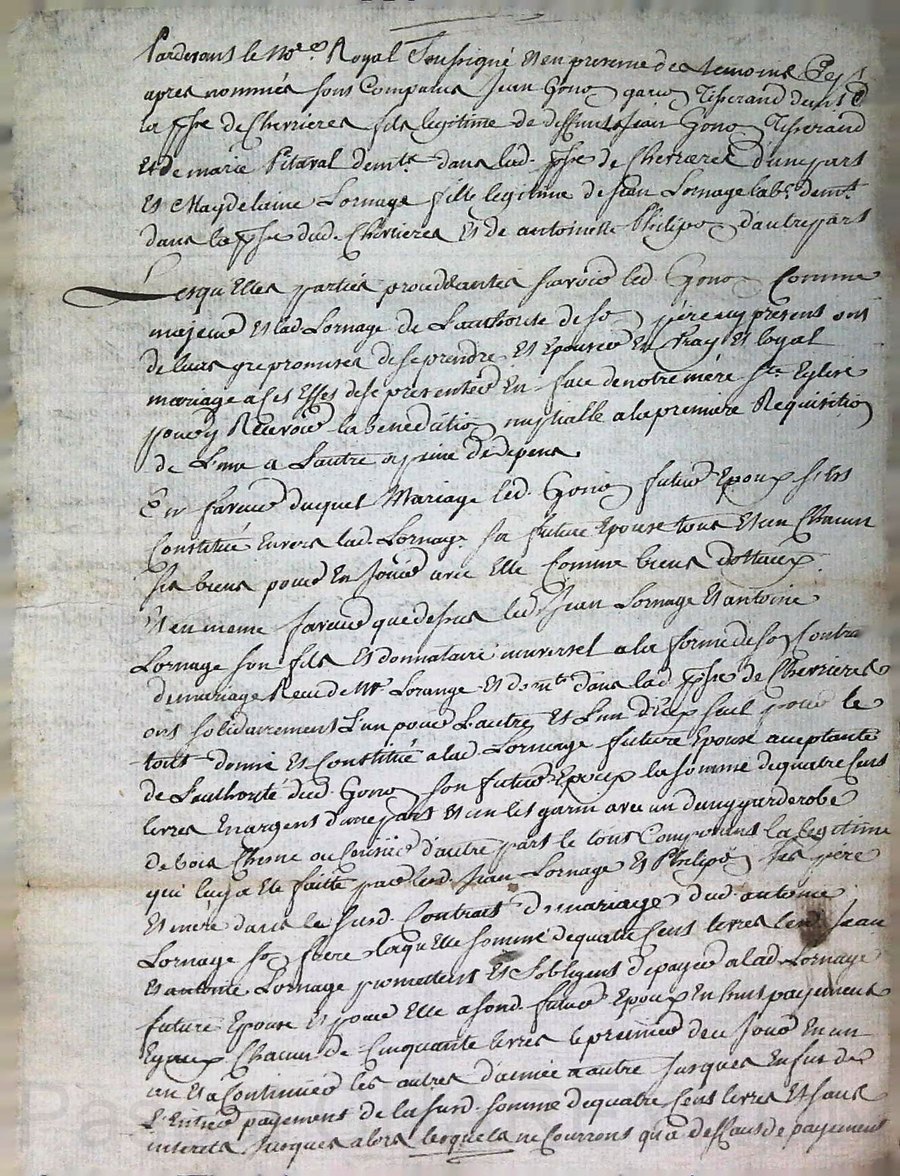 Pardevant le No.re Royal Soussigné et en presence des temoins
apres nommés sont Comparus Jean Gono garçon Tisserand demt
la psse de Chevrieres fils legitime de deffunt Jean Gono Tisserand
et de marie Pitaval demte dans lad. psse de Chevrieres d'une part
et Magdelaine Lornage fille legitime de Jean Lornage labr demt
dans la psse dud. Chevrieres et de antoinette Philipo d'autre part
Lesquelles parties procedantes savoir led. Gono Comme
majeur et lad Lornage de L'authorité de so pere icy present ont
de leurs gre promises de se prendre et Epouser En vray et loyal
mariage a Ces Effes de se presenter En face de notre mere Ste Eglise
pour y Recevoir la benediction nuptialle a la premiere Requisition
de L'une a L'autre a peine de depens
En faveur duquel Mariage led. Gono futur Epoux s'est
Constitué Envers lad. Lornage sa future Epouse tous et un Chacun
ses biens pour En Jouir avec Elle Comme biens dottaux.
Et en meme faveur que dessus led. Jean Lornage et antoine
Lornage son fils et donnataire universel a la forme de so Contra
de mariage Recu de Mr Lorange et demt dans lad psse de Chevrieres
ont solidairement L'un pour L'autre et L'un d'eux seul pour le
tout donné et Constitué a lad Lornage future Epouse aceptante
de L'authorité dud. Gono son futur Epoux la somme de quatre Cens
livres En argent d'une part et un les garni avec un garderobe
de bois Chene ou Cerisier d'autre part le tout Comprenant la legitime
qui luy a ete faitte par led. Jean Lornage et Philipo ses père
et mere dans le susd. Contrat de mariage dud antoine
Lornage so frere laquelle somme de quatre Cens livres led. Jean
et antoine Lornage promettent et s'obligent de payer a lad Lornage
future Epouse et pour Elle a sond. futur Epoux En huit payements
Egaux Chacun de Cinquante livres le premier de ce Jour En un
an et a Continuer les autres d'année a autre Jusques En fin de
L'Entier payement de la susd. somme de quatre Cens livres et sans
interets Jusques alors lesquels ne Courront qu'a deffaut de payement